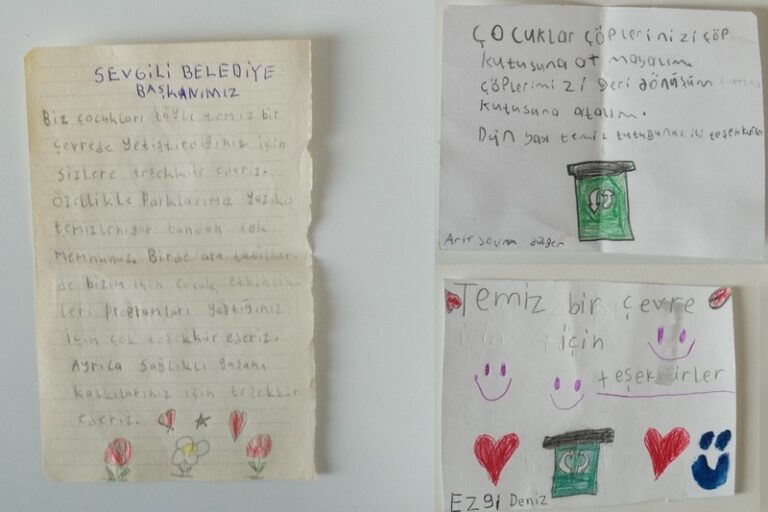 SEVGİLİ BELEDİYE
BAŞKANIMIZ
Biz çocukları böyle temiz bir
çevrede yetiştirdiğiniz için
sizlere teşekkür ederiz.
Özellikle Parklarımız
temizleniyor bundan çok
memnunuz. Birde ara tatiller
de bizim için çocuk etkinlik
leri programları yaptığınız
için çok teşekkür ederiz.
Ayrıca Sağlıklı yaşama
katkılarınız için teşekkür
ederiz.
ÇOCUKLAR ÇÖPlerinizi çöp
kutusuna atmaşalım.
çöplerimizi geri dönüşüm
kutusuna atalım.
temiz
Temiz bir çevre
için için
teşekkürler
EZgi Deniz